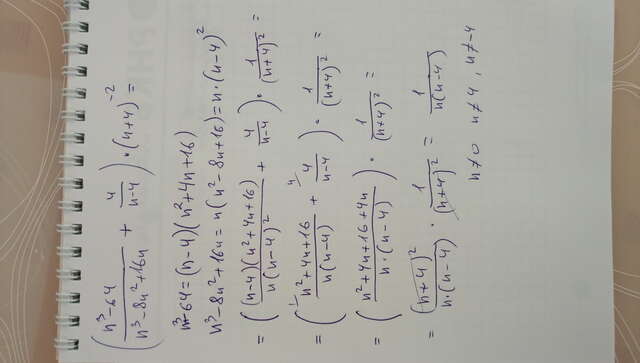 (n³-64 / n³-8n²+16n + 4 / n-4) · (n+4)⁻² =
n³-64=(n-4)(n²+4n+16)
n³-8n²+16n=n(n²-8n+16)=n·(n-4)²
= ((n-4)(n²+4n+16) / n(n-4)² + 4 / n-4) · 1 / (n+4)² =
= (n²+4n+16 / n(n-4) + 4 / n-4) · 1 / (n+4)² =
= (n²+4n+16+4n / n·(n-4)) · 1 / (n+4)² =
= (n+4)² / n·(n-4) · 1 / (n+4)² = 1 / n(n-4)
n≠0 n≠4, n≠-4